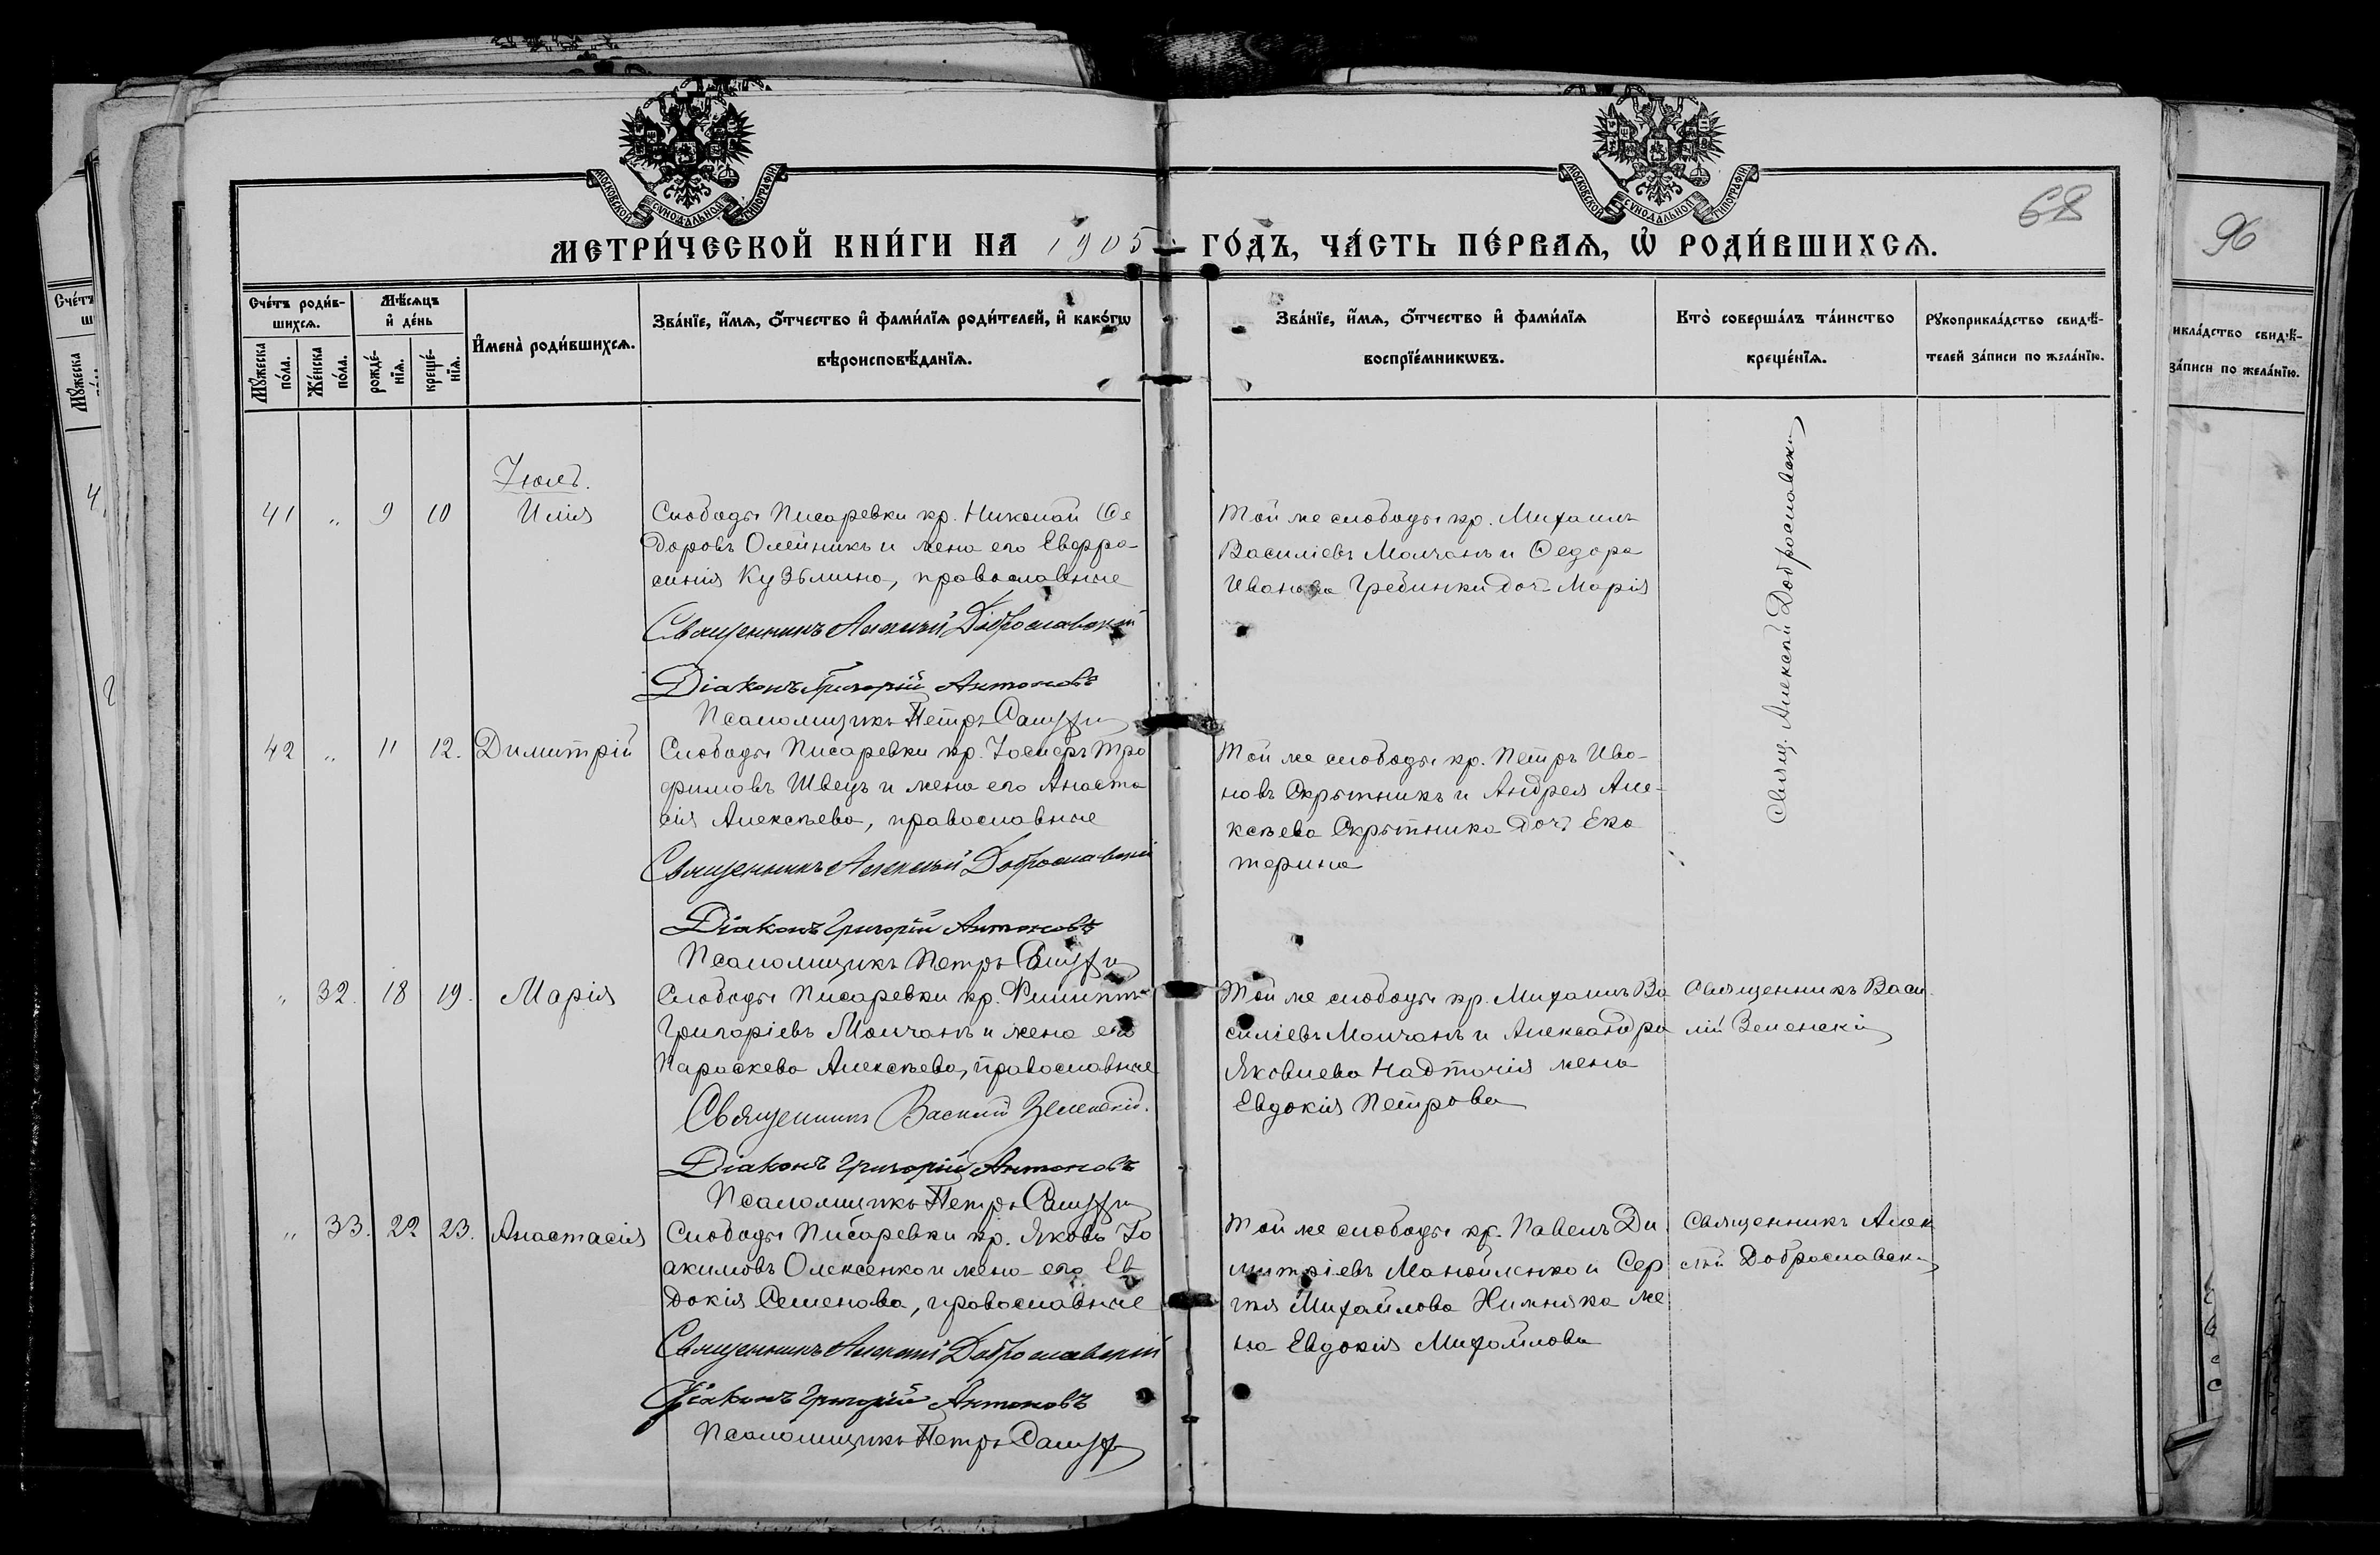 МОСКОВСКОЙ СѴНОДАЛЬНОЙ ТИПОГРАФІИ
МОСКОВСКОЙ СѴНОДАЛЬНОЙ ТИПОГРАФІИ
68
96
МЕТРИ́ЧЕСКОЙ КНИ́ГИ НА 1905 ГО́ДЪ, ЧА́СТЬ ПЕ́РВАѦ, Ѡ҆ РОДИ́ВШИХСѦ.
Сче́тъ роди́в-
шихсѧ.
Мꙋ́жеска по́ла.
Же́нска по́ла.
Мѣ́сѧцъ
и҆ де́нь
рожде́-
нїѧ.
креще́-
нїѧ.
И҆мена̀ роди́вшихсѧ.
Зва́нїе, и҆́мѧ, ѻ҆́тчество и҆ фами́лїѧ роди́телей, и҆ како́гѡ
вѣроисповѣ́данїѧ.
Зва́нїе, и҆́мѧ, ѻ҆́тчество и҆ фами́лїѧ
воспрїе́мникѡвъ.
Кто̀ соверша́лъ та́инство
креще́нїѧ.
Рꙋкоприкла́дство свидѣ́-
телей за́писи по жела́нїю.
Іюль.
41 " 9 10 Илія
Слободы Писаревки кр. Николай Ѳе
доровъ Олейникъ и жена его Евфро-
синія Кузьмина, православные
Священникъ Алексѣй Доброславскій
Діаконъ Григорій Антоновъ
Псаломщикъ Петръ
Той же слободы кр. Михаилъ
Василіевъ Молчанъ и Ѳедора
Иванова Гребинки дочь Марія
Свящ. Алексѣй Доброславскій
42 " 11 12. Димитрій
Слободы Писаревки кр. Іосифъ Тро
фимовъ Швецъ и жена его Анаста
сія Алексѣева, православные
Священникъ Алексѣй Доброславскій
Діаконъ Григорій Антоновъ
Псаломщикъ Петръ
Той же слободы кр. Петръ Ива-
новъ Скрыпникъ и Андрея Але-
ксѣева Скрыпника дочь Ека
терина
" 32. 18 19. Марія
Слободы Писаревки кр. Филиппъ
Григоріевъ Молчанъ и жена его
Параскева Алексѣева, православные
Священникъ Василій Зеленскій.
Діаконъ Григорій Антоновъ
Псаломщикъ Петръ
Той же слободы кр. Михаилъ Ва
силіевъ Молчанъ и Александра
Яковлева Надточія жена
Евдокія Петрова
Священникъ Васи
лій Зеленскій
" 33. 22 23. Анастасія
Слободы Писаревки кр. Яковъ Іо
акимовъ Олексенко и жена его Ев
докія Семенова, православные
Священникъ Алексѣй Доброславскій
Діаконъ Григорій Антоновъ
Псаломщикъ Петръ
Той же слободы кр. Павелъ Ди
митріевъ Манойленко и Сер
гія Михайлова Нижняка же
на Евдокія Михайлова
Священникъ Алек
сѣй Доброславскій